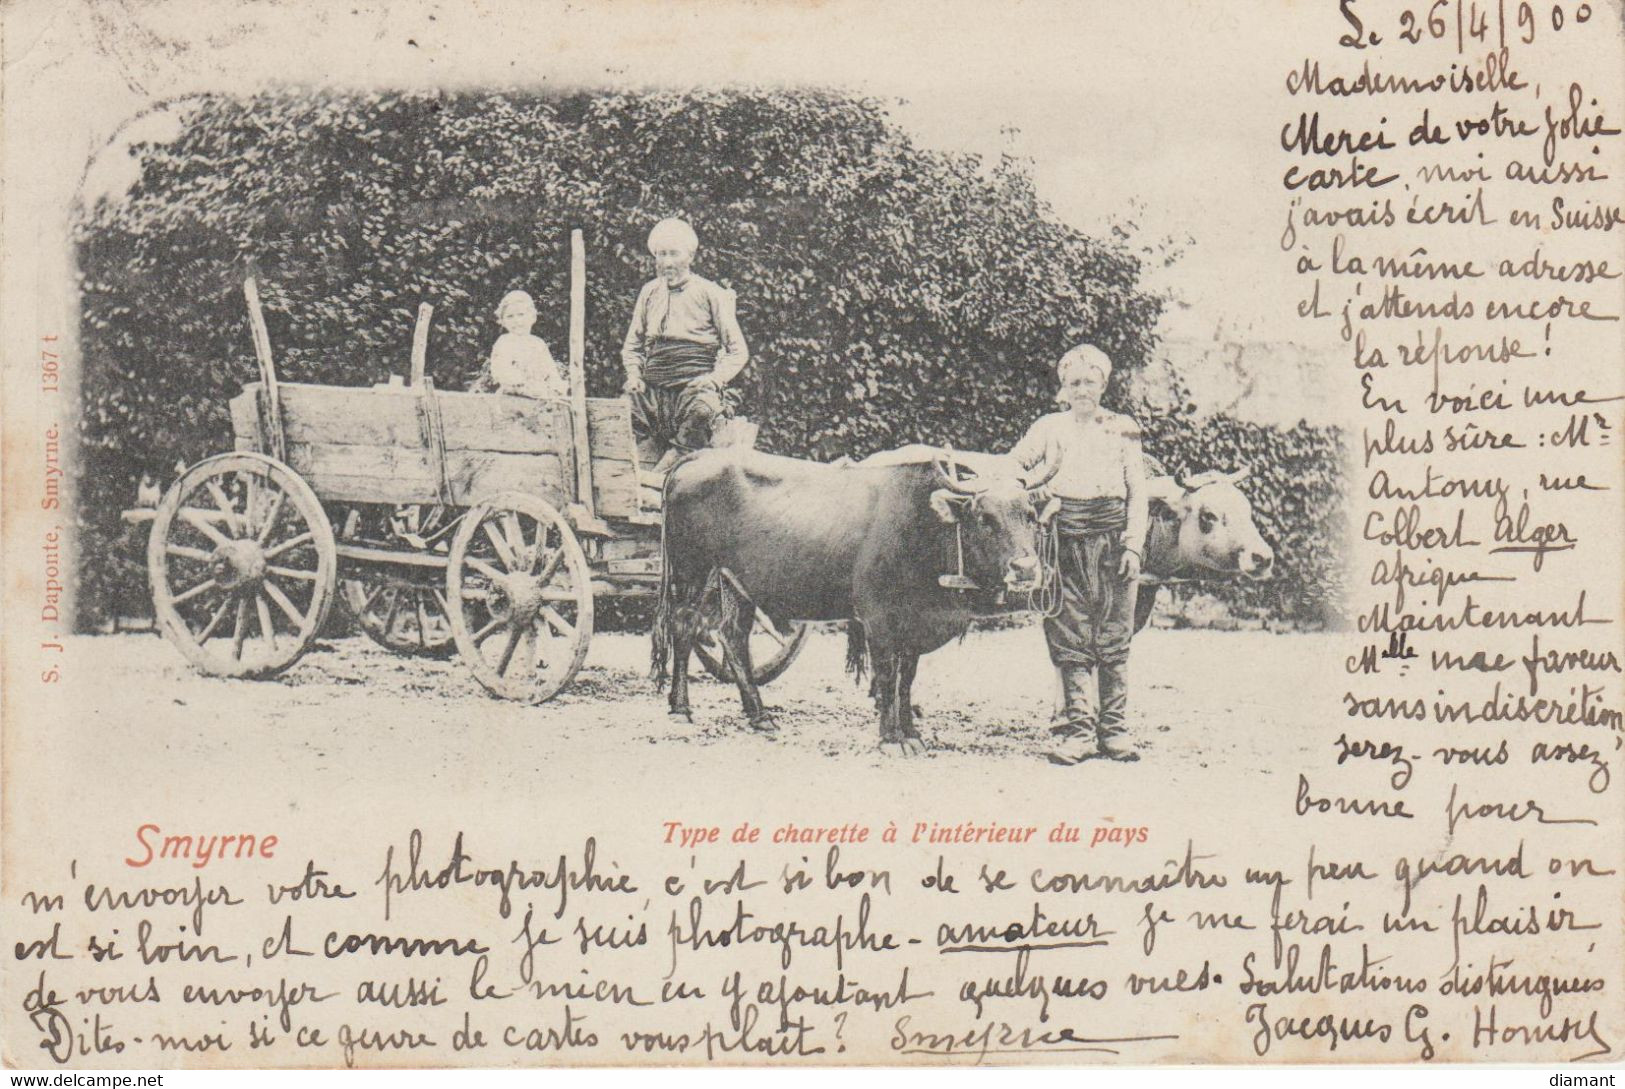 Le 26/4/900
Mademoiselle,
Merci de votre jolie
carte, moi aussi
j'avais écrit en Suisse
à la même adresse
et j'attends encore
la réponse!
En voici une
plus sûre : Mr
Antony, rue
Colbert Alger
Afrique
Maintenant
Melle une faveur
sans indiscrétion
serez-vous assez
bonne pour
S. J. Daponte, Smyrne. 1367 t
Smyrne
Type de charette à l'intérieur du pays
m'envoyer votre photographie, c'est si bon de se connaître un peu quand on
est si loin, et comme je suis photographe-amateur je me ferai un plaisir
de vous envoyer aussi le mien en y ajoutant quelques vues. Salutations distinguées
Dites-moi si ce genre de cartes vous plaît? Smyrne Jacques G.
diamant